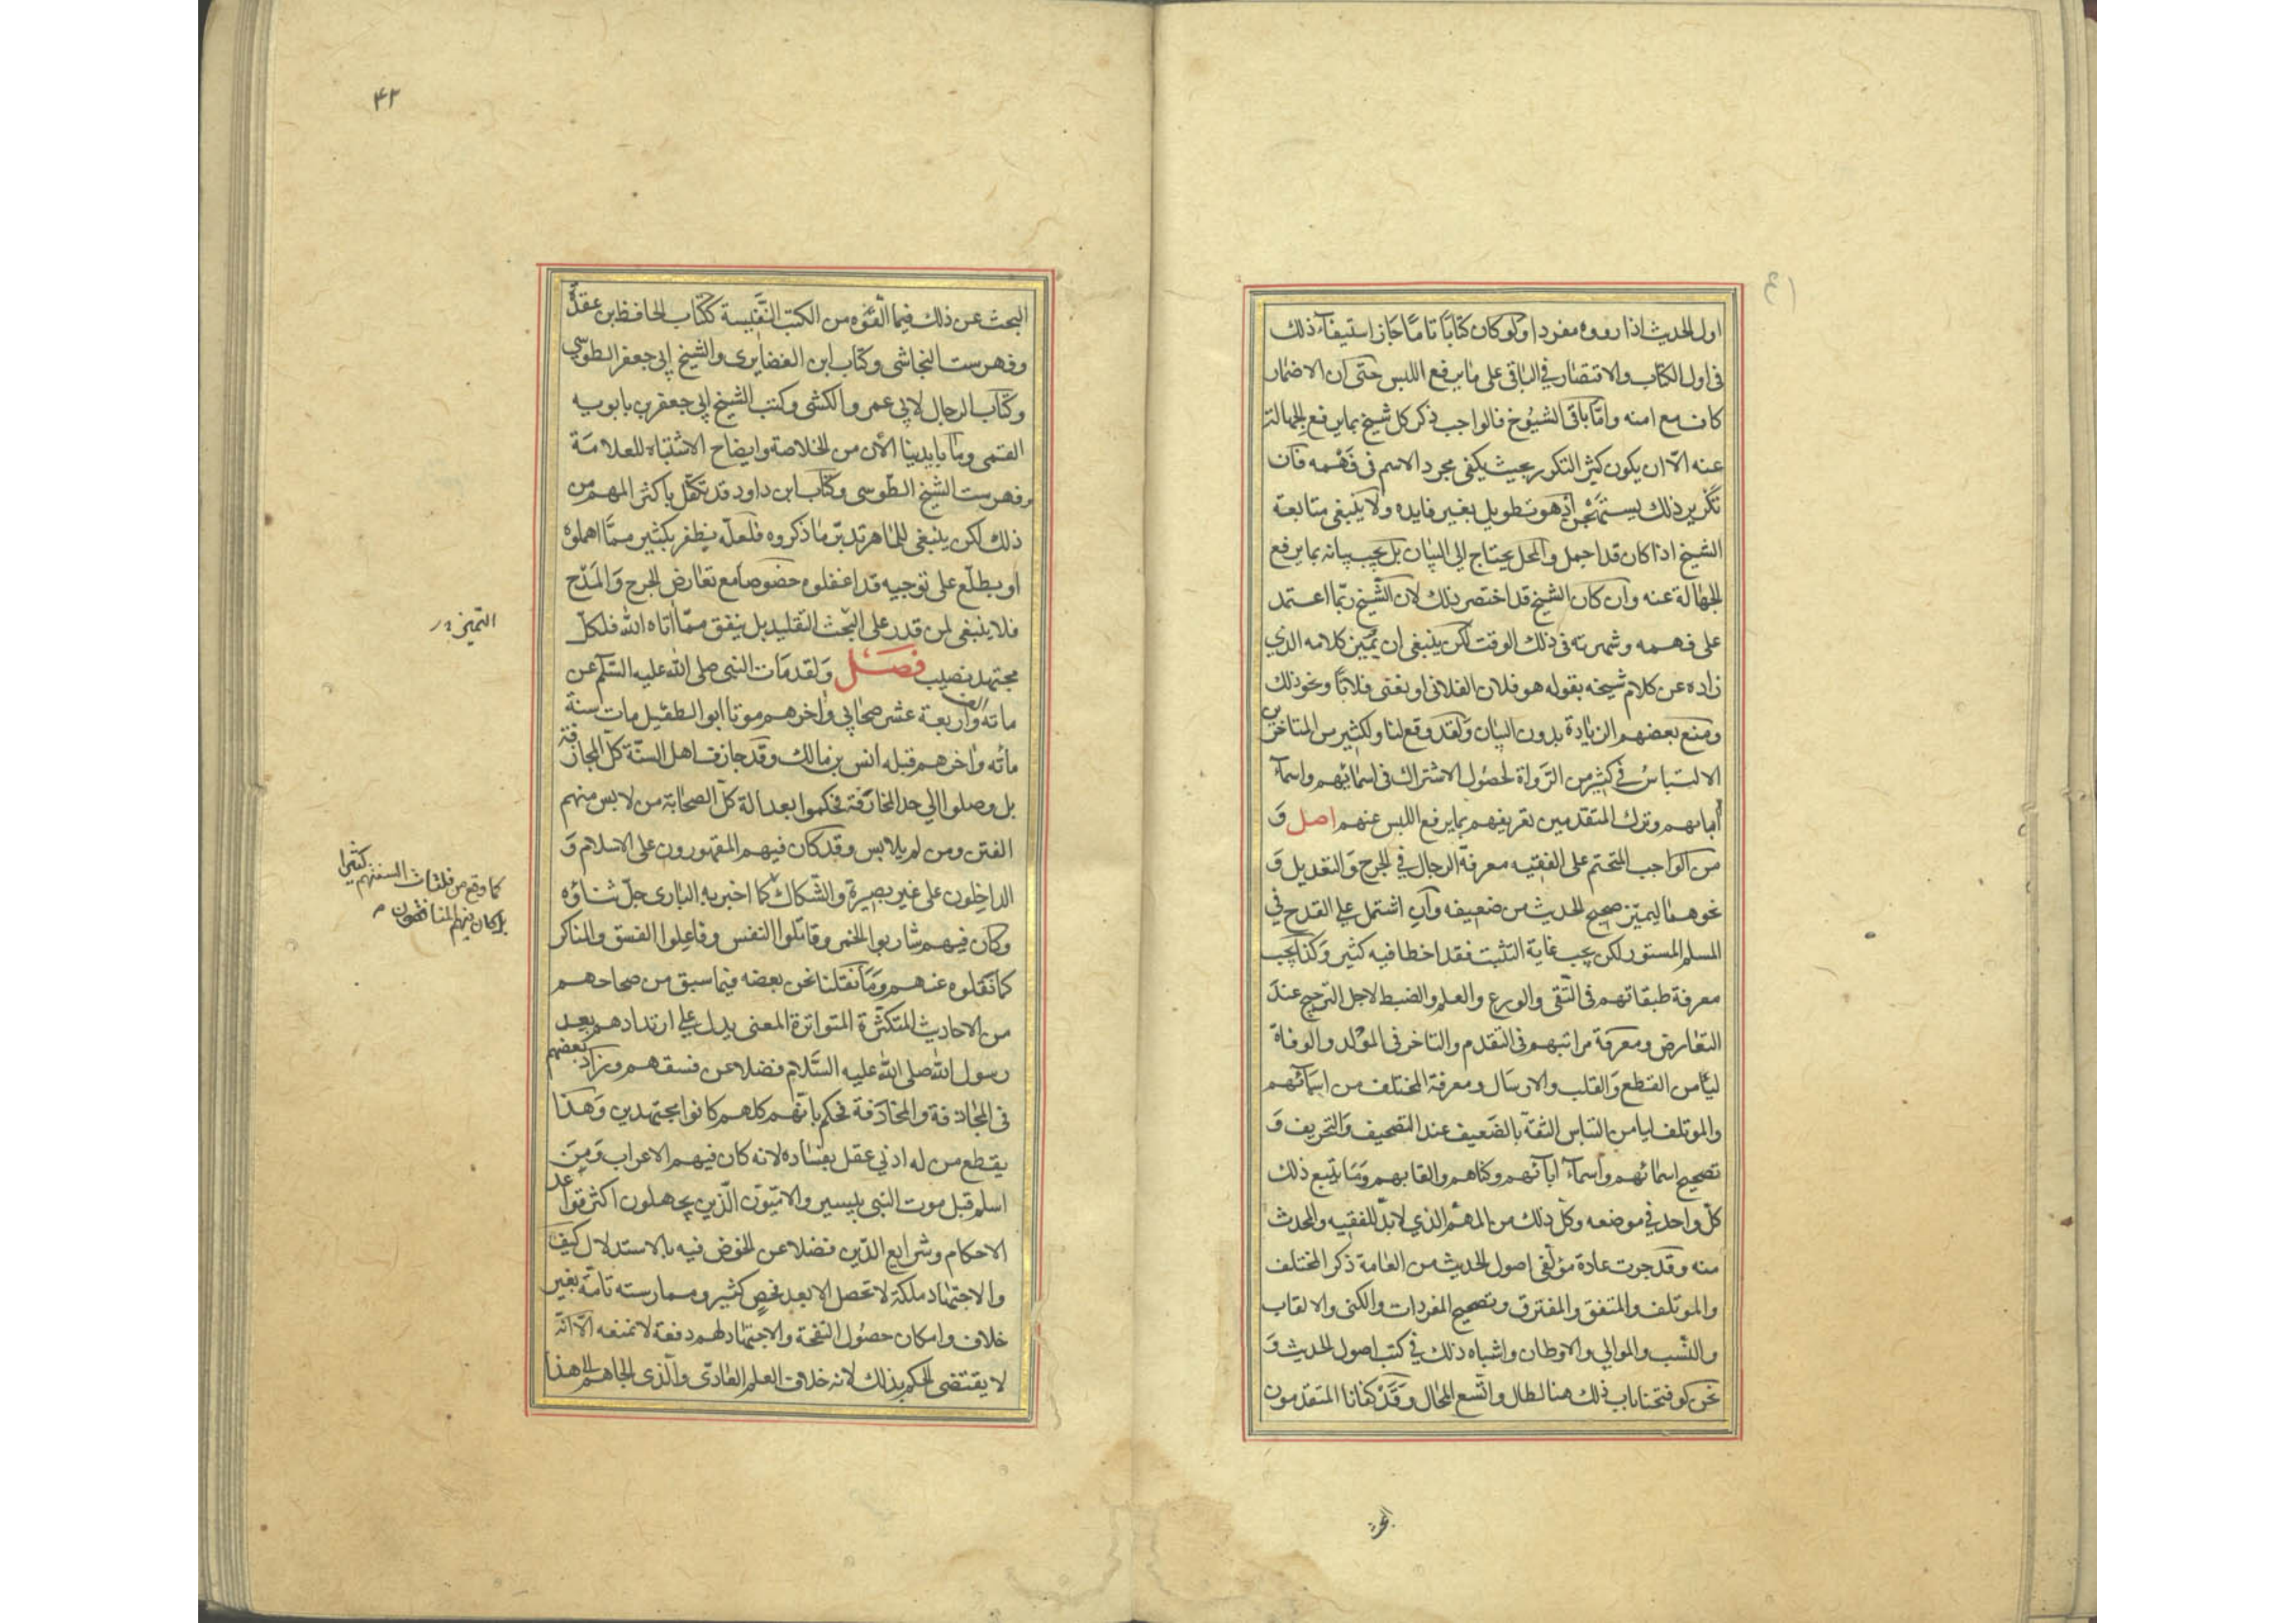 اول الحديث اذا رووه مفردا ولو كان كتابًا تامًا جاز استيفاء ذلك
فى اول الكتاب والاقتصار فى الباقى على ما يرفع اللبس حتى ان الاضمار
كاف مع امنه وامّا باقى الشيوخ فالواجب ذكر كل شيخ بما يرفع الجهالة
عنه الّا ان يكون كثير التكرر بحيث يكفى مجرد الاسم فى فهمه فان
تكرير ذلك يستهجن اذ هو تطويل بغير فايده ولا ينبغى متابعة
الشيخ اذا كان قد اجمل والمحل يحتاج الى البيان بل يجب بيانه بما يرفع
الجهالة عنه وان كان الشيخ قد اختصر ذلك لان الشيخ ربّما اعتمد
على فهمه وشهرته فى ذلك الوقت لكن ينبغى ان يميّز كلامه الذي
زاده عن كلام شيخه بقوله هو فلان الفلانى او يعنى فلانًا ونحو ذلك
ومنع بعضهم الزيادة بدون البيان ولقد وقع لنا ولكثير من المتاخرين
الالتباس فى كثير من الرواة لحصول الاشتراك فى اسمائهم واسماء
ابائهم وترك المتقدمين تعريفهم بما يرفع اللبس عنهم اصل و
من الواجب المتحتم على الفقيه معرفة الرجال فى الجرح والتعديل و
نحوهما ليميّز صحيح الحديث من ضعيفه وان اشتمل على القدح فى
المسلم المستور لكن يجب غاية التثبت فقد اخطا فيه كثير وكذا يجب
معرفة طبقاتهم فى التقى والورع والعلم والضبط لاجل الترجيح عند
التعارض ومعرفة مراتبهم فى التقدم والتاخر فى المولد والوفاة
ليأمن القطع والقلب والارسال ومعرفة المختلف من اسمائهم
والموتلف ليامن التباس الثقة بالضعيف عند التصحيف والتحريف و
تصحيح اسمائهم واسماء ابائهم وكناهم والقابهم وما يتبع ذلك
كل واحد فى موضعه وكل ذلك من المهم الذي لا بدّ للفقيه والمحدث
منه وقد جرت عادة مؤلفى اصول الحديث من العامة ذكر المختلف
والموتلف والمتفق والمفترق وتصحيح المفردات والكنى والالقاب
والنسب والموالى والاوطان واشباه ذلك فى كتب اصول الحديث و
نحن لو فتحنا باب ذلك هنا لطال واتسع المجال وقد كفانا المتقدمون
۴۲
البحث عن ذلك فيما الّفوه من الكتب النفيسة ككتاب الحافظ بن عقدة
وفهرست النجاشى وكتاب ابن الغضايرى والشيخ ابى جعفر الطوسى
وكتاب الرجال لابى عمرو الكشى وكتب الشيخ ابى جعفر بن بابويه
القمى وما بايدينا الآن من الخلاصة وايضاح الاشتباه للعلامة
وفهرست الشيخ الطوسى وكتاب ابن داود قد تكفّل باكثر المهم من
ذلك لكن ينبغى للماهر تدبّر ما ذكروه فلعلّه يظفر بكثير ممّا اهملوه
او يطلع على توجيه قد اغفلوه خصوصا مع تعارض الجرح والمدح
فلا ينبغى لمن قدر على البحث التقليد بل ينفق ممّا اتاه الله فلكلّ
مجتهد نصيب فصل ولقد مات النبى صلى الله عليه السّلم عن
مائة الف واربعة عشر صحابى واخرهم موتا ابو الطفيل مات سنة
مائه واخرهم قبله انس بن مالك وقد جازف اهل السنّة كلّ المجازفة
بل وصلوا الى حد المخارفة فحكموا بعدالة كلّ الصحابة من لابس منهم
الفتن ومن لم يلابس وقد كان فيهم المقهورون على الاسلام و
الداخلون على غير بصيرة والشكاك كما اخبر به البارى جلّ ثناؤه
وكان فيهم شاربوا الخمر وقاتلوا النفس وفاعلوا الفسق والمناكر
كما نقلوه عنهم وما نقلنا نحن بعضه فيما سبق من صحاحهم
من الاحاديث المتكثرة المتواترة المعنى يدل على ارتدادهم بعد
رسول الله صلى الله عليه السّلام فضلا عن فسقهم وزاد بعضهم
فى المجازفة والمخارفة فحكم بانّهم كلهم كانوا مجتهدين وهذا
يقطع من له ادنى عقل بفساده لانه كان فيهم الاعراب ومن
اسلم قبل موت النبى بيسير والاميّون الّذين يجهلون اكثر قواعد
الاحكام وشرايع الدّين فضلا عن الخوض فيه بالاستدلال كيف
والاجتهاد ملكة لا تحصل الا بعد فحص كثير وممارسته تامّة بغير
خلاف وامكان حصول النفحة والاجتهاد لهم دفعة لا نمنعه الّا انّه
لا يقتضى الحكم بذلك لانه خلاف العلم العادّى والّذى الجاهم الى هذا
كما وقع من فلتات السنتهم كثيرا
بل كان فيهم المنافقون